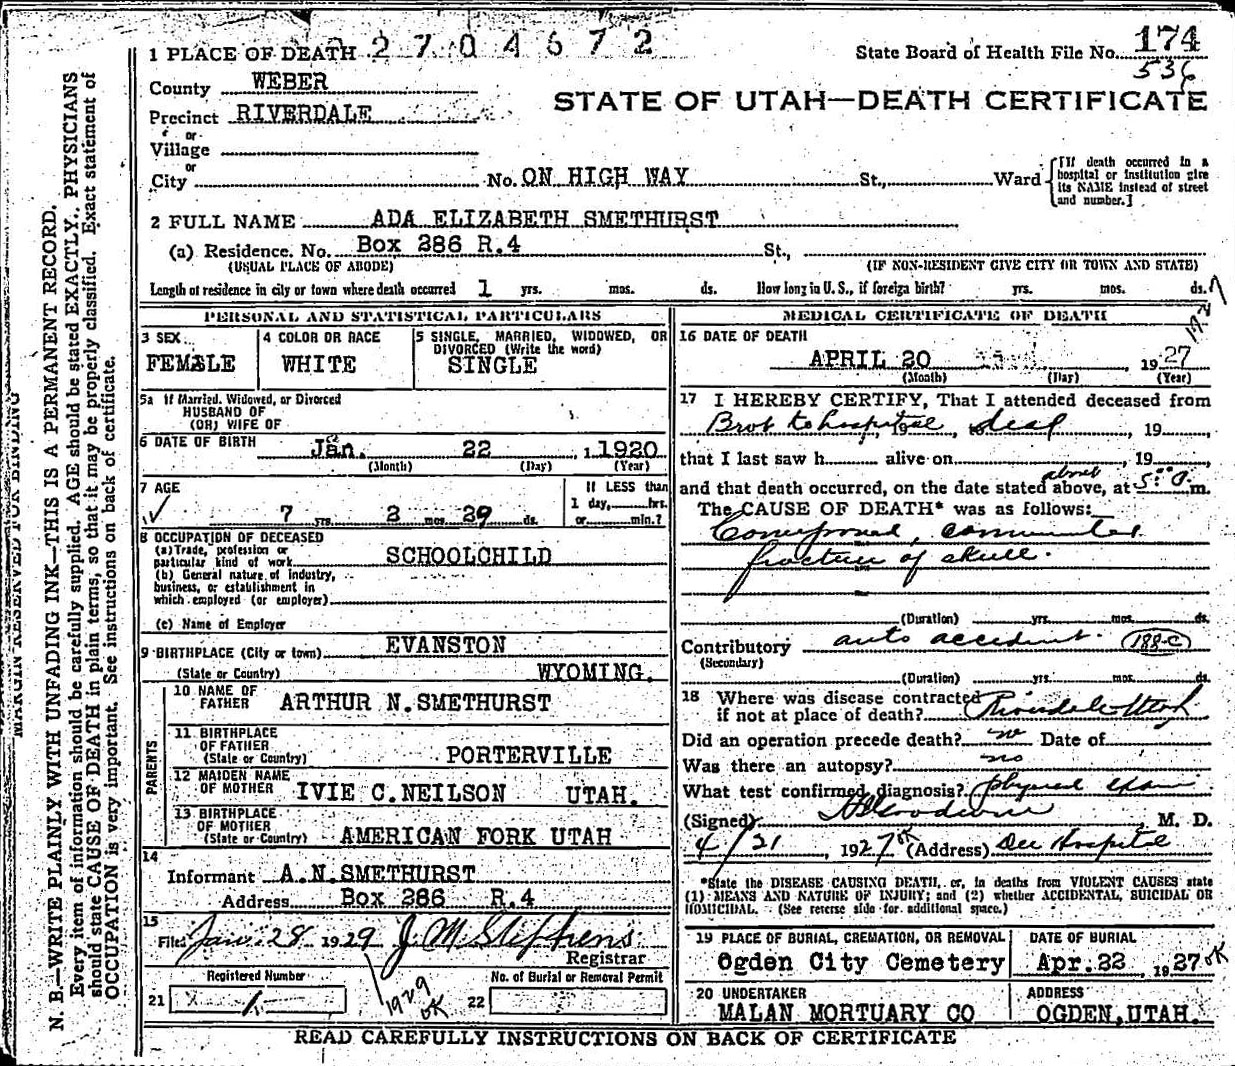 1 PLACE OF DEATH 2704672 State Board of Health File No. 174
536
County WEBER
STATE OF UTAH—DEATH CERTIFICATE
Precinct RIVERDALE
or
Village
or
City No. ON HIGH WAY St., Ward [If death occurred in a hospital or institution give its NAME instead of street and number.]
2 FULL NAME ADA ELIZABETH SMETHURST
(a) Residence. No. Box 286 R.4 St.,
(USUAL PLACE OF ABODE) (IF NON-RESIDENT GIVE CITY OR TOWN AND STATE)
Length of residence in city or town where death occurred 1 yrs. mos. ds. How long in U. S., if foreign birth? yrs. mos. ds.
PERSONAL AND STATISTICAL PARTICULARS
3 SEX
FEMALE
4 COLOR OR RACE
WHITE
5 SINGLE, MARRIED, WIDOWED, OR
DIVORCED (Write the word)
SINGLE
5a If Married, Widowed, or Divorced
HUSBAND OF
(OR) WIFE OF
6 DATE OF BIRTH Jan. 22, 1920
(Month) (Day) (Year)
7 AGE
7 yrs. 2 mos. 29 ds.
If LESS than
1 day, hrs.
or min.?
8 OCCUPATION OF DECEASED
(a) Trade, profession or
particular kind of work SCHOOLCHILD
(b) General nature of industry,
business, or establishment in
which employed (or employer)
(c) Name of Employer
9 BIRTHPLACE (City or town) EVANSTON
(State or Country) WYOMING.
PARENTS
10 NAME OF
FATHER ARTHUR N. SMETHURST
11 BIRTHPLACE
OF FATHER
(State or Country) PORTERVILLE
12 MAIDEN NAME
OF MOTHER IVIE C. NEILSON UTAH.
13 BIRTHPLACE
OF MOTHER
(State or Country) AMERICAN FORK UTAH
14
Informant A.N. SMETHURST
Address Box 286 R.4
15
Filed Jan. 28 1929 J. M. Stephens
Registrar
1929 OK
Registered Number
21 1
No. of Burial or Removal Permit
22
MEDICAL CERTIFICATE OF DEATH
16 DATE OF DEATH
APRIL 20 1927
(Month) (Day) (Year)
17 I HEREBY CERTIFY, That I attended deceased from
Brot to hospital, 19 , dead, 19 ,
that I last saw h alive on , 19 ,
about
and that death occurred, on the date stated above, at 5:00 P. m.
The CAUSE OF DEATH* was as follows:
Compound, comminuted
fracture of skull.
(Duration) yrs. mos. ds.
Contributory auto accident. 188-c
(Secondary)
(Duration) yrs. mos. ds.
18 Where was disease contracted
if not at place of death? Riverdale Utah
Did an operation precede death? no Date of
Was there an autopsy? no
What test confirmed diagnosis? physical exam
(Signed) , M. D.
4/21, 1927 OK (Address) Dee Hospital
*State the DISEASE CAUSING DEATH, or, in deaths from VIOLENT CAUSES state
(1) MEANS AND NATURE OF INJURY; and (2) whether ACCIDENTAL, SUICIDAL OR
HOMICIDAL. (See reverse side for additional space.)
19 PLACE OF BURIAL, CREMATION, OR REMOVAL
Ogden City Cemetery
DATE OF BURIAL
Apr. 22, 1927 OK
20 UNDERTAKER
MALAN MORTUARY CO
ADDRESS
OGDEN, UTAH.
READ CAREFULLY INSTRUCTIONS ON BACK OF CERTIFICATE
MARGIN RESERVED FOR BINDING
N. B.—WRITE PLAINLY WITH UNFADING INK—THIS IS A PERMANENT RECORD.
Every item of information should be carefully supplied. AGE should be stated EXACTLY. PHYSICIANS
should state CAUSE OF DEATH in plain terms, so that it may be properly classified. Exact statement of
OCCUPATION is very important. See instructions on back of certificate.